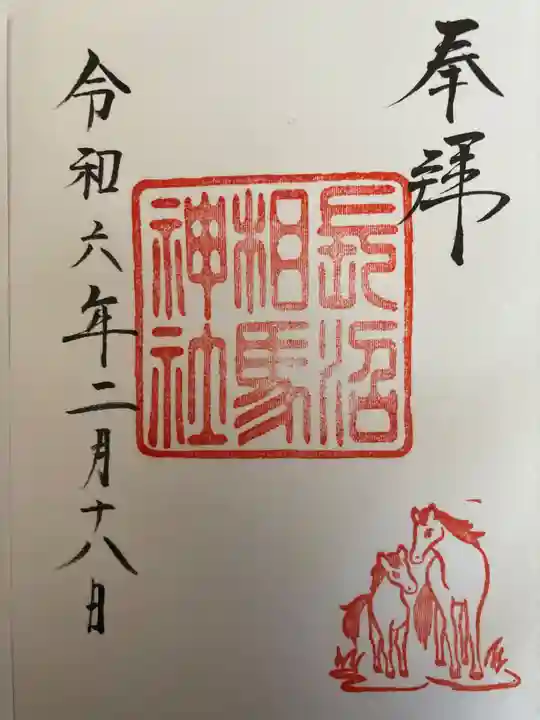 奉拝
長沼
相馬
神社
令和六年二月十八日